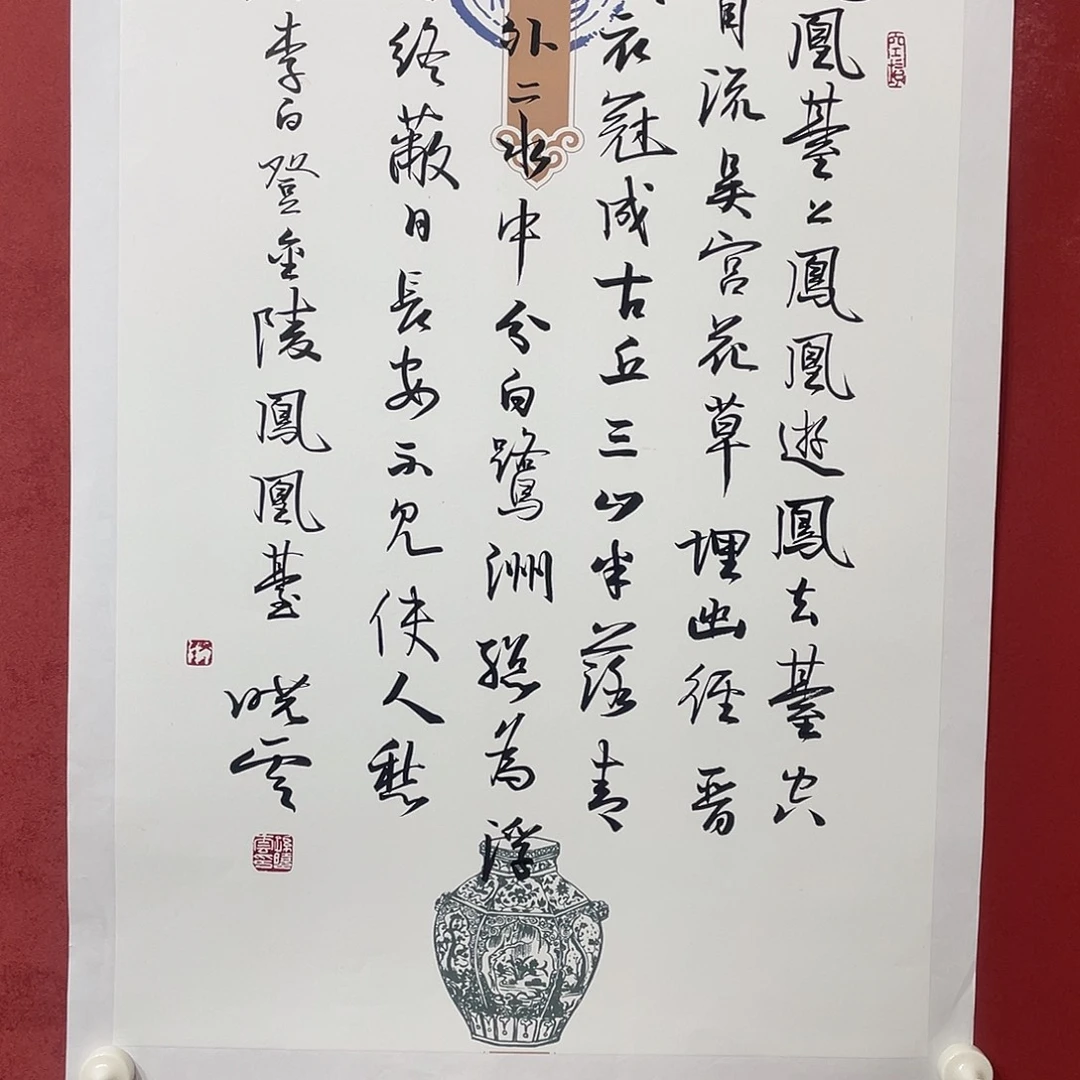 凰臺上鳳凰遊鳳去臺空
自流吳宮花草埋幽徑晉
衣冠成古丘三山半落青
外二水中分白鷺洲總為浮
終蔽日長安不見使人愁
李白登金陵鳳凰臺 曉雲